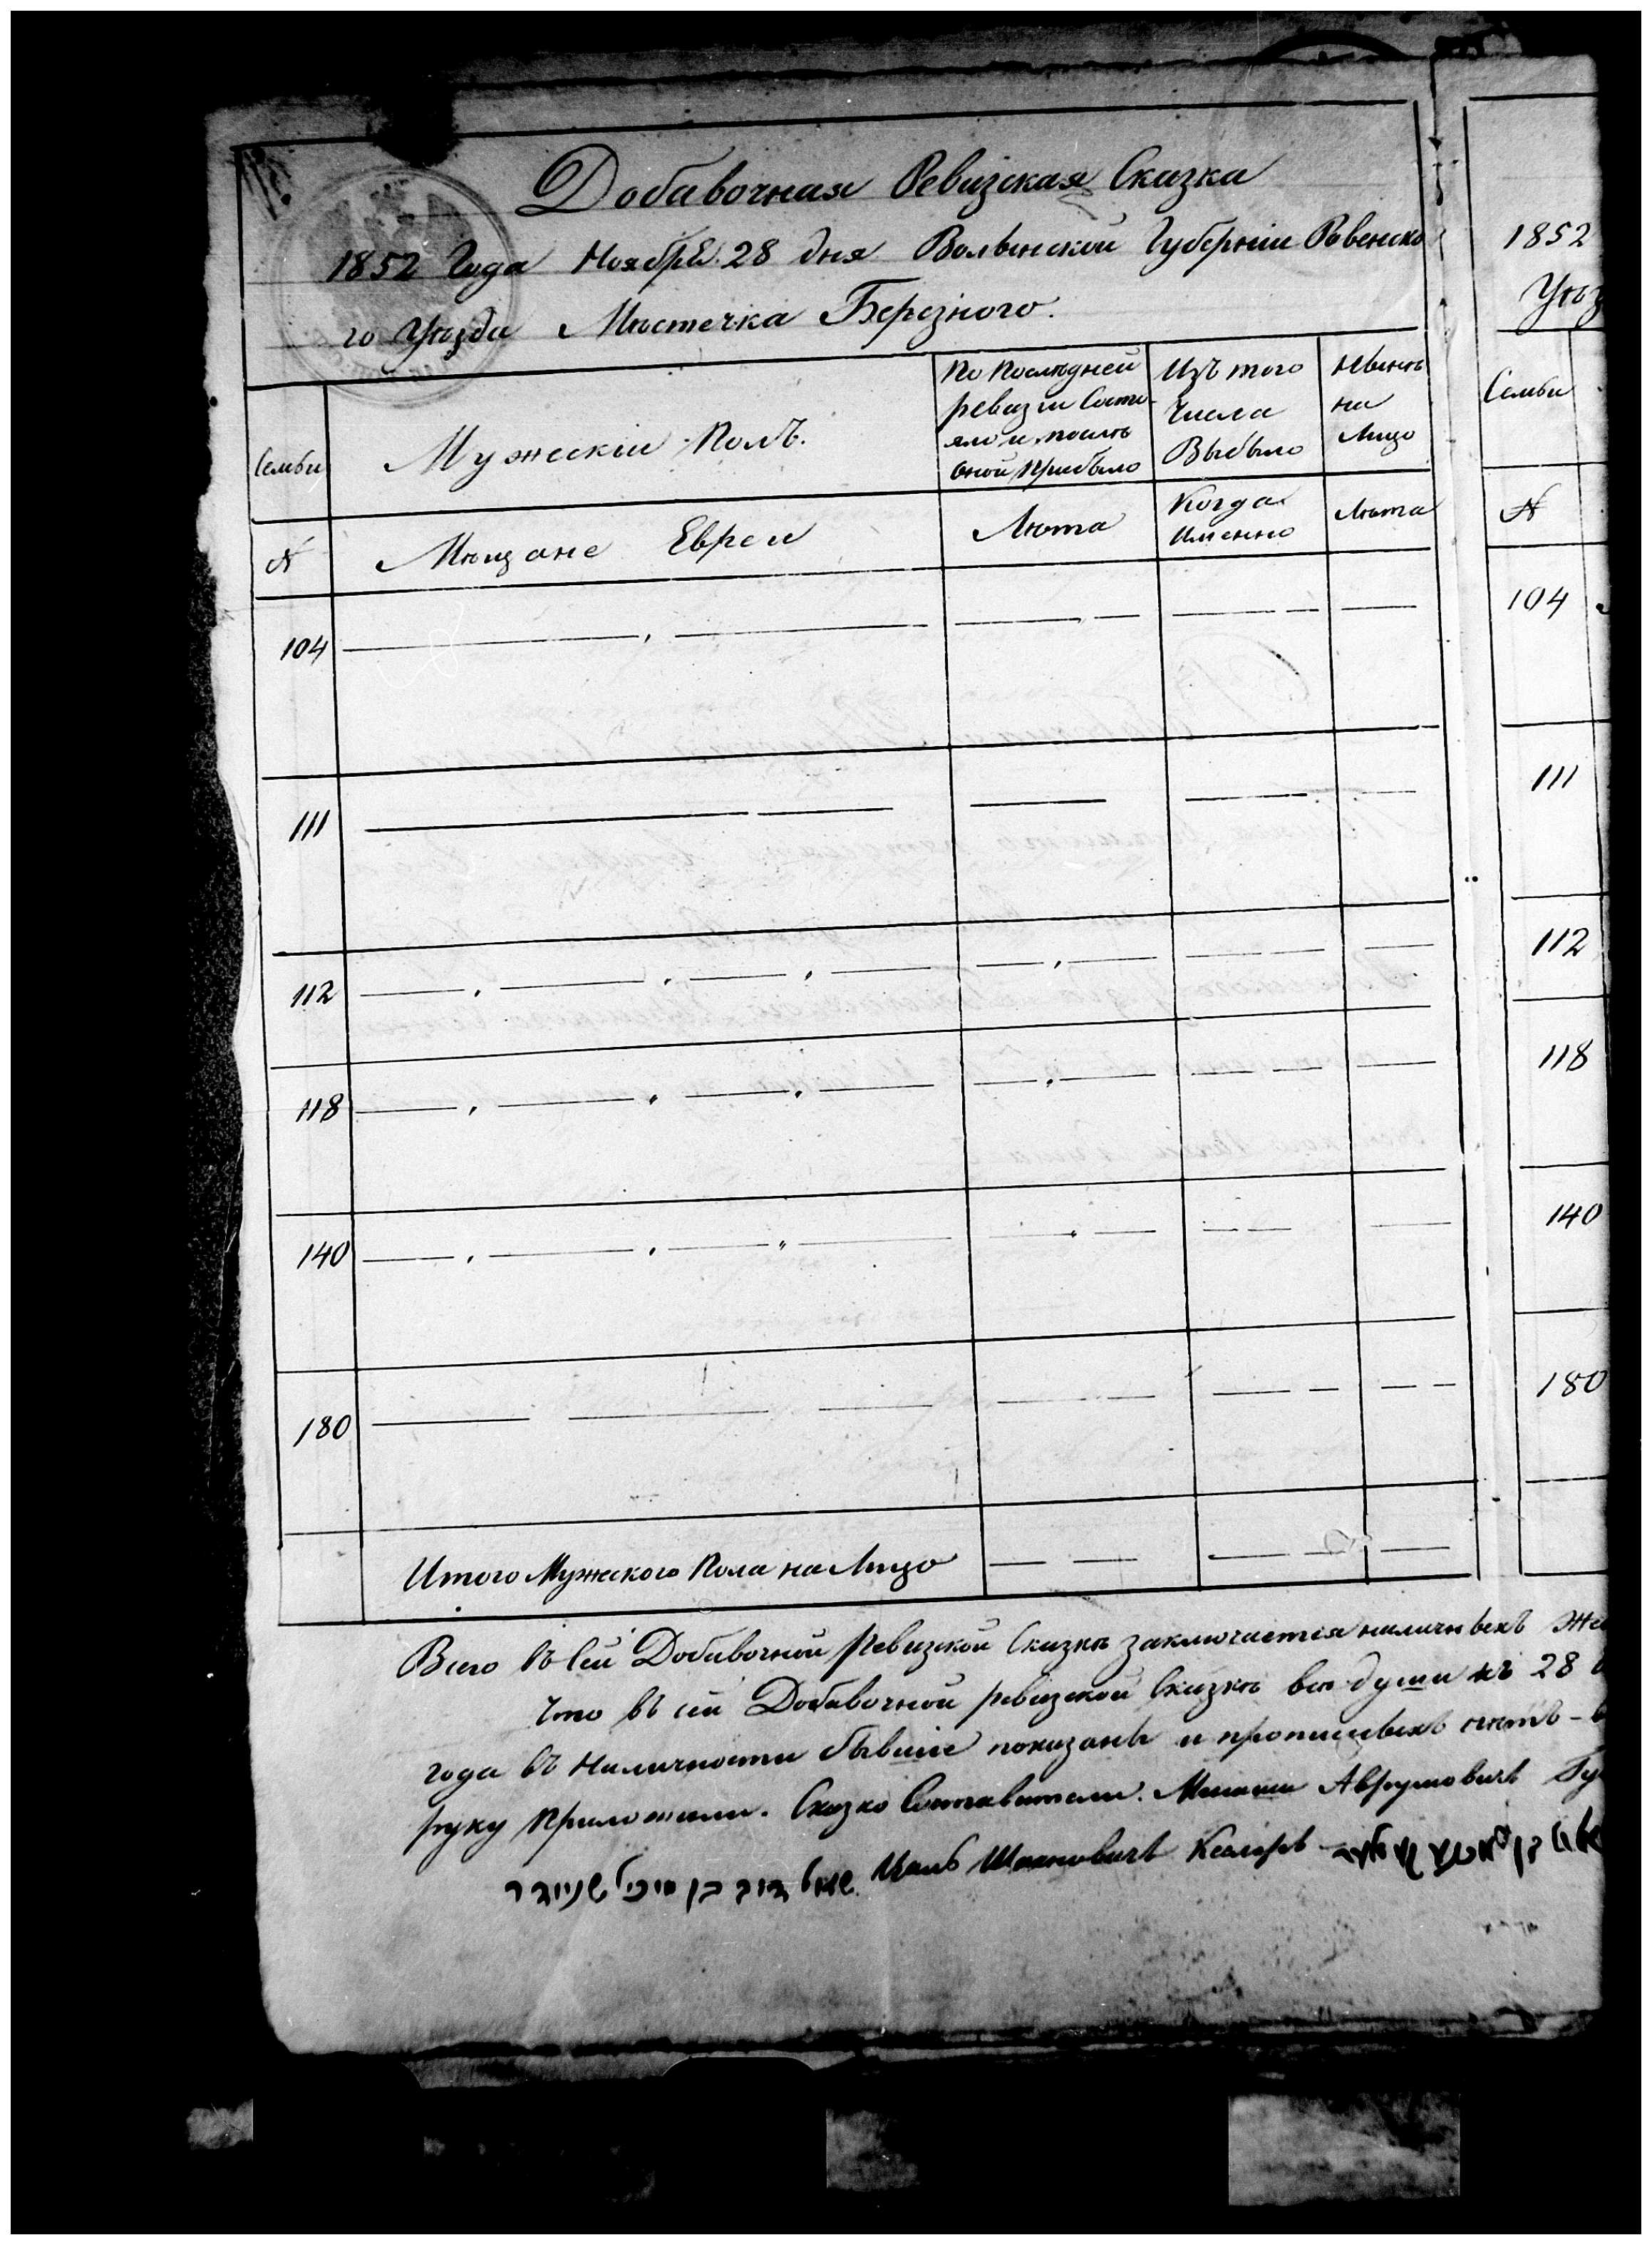 Добавочная Ревизская Сказка
1852 Года Ноября 28 дня Волынской Губерніи Ровенско
го Уѣзда Мѣстечка Березного.
Семьи
Мужескій Полъ.
По Послѣдней
ревизіи Состо-
яло и послѣ
оной Прибыло
Изъ того
Числа
Выбыло
Нынѣ
на
Лицо
№
Мѣщане Евреи
Лѣта
Когда
Именно
Лѣта
104
111
112
118
140
180
Итого Мужеского Пола на Лицо
1852
Уѣз
Семьи
№
104
111
112
118
140
180
Всего въ сей Добавочной Ревизской Сказкѣ заключается наличныхъ Же
Что въ сей Добавочной ревизской Сказкѣ всѣ души къ 28
года въ Наличности бывшіе показаны и прописныхъ нѣтъ -
руку Приложили. Сказко Составители:
שניידר בן דוב